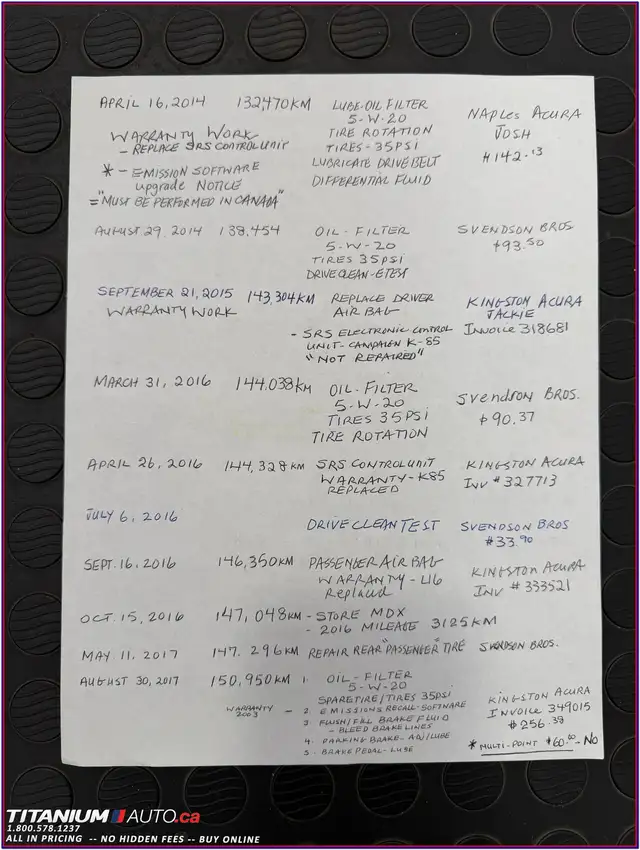 APRIL 16, 2014 132,470 KM LUBE-OIL FILTER
5-W-20
NAPLES ACURA
JOSH
$142.13
WARRANTY WORK
- REPLACE SRS CONTROL UNIT
TIRE ROTATION
TIRES - 35PSI
* - EMISSION SOFTWARE
upgrade NOTICE
= "MUST BE PERFORMED IN CANADA"
LUBRICATE DRIVE BELT
DIFFERENTIAL FLUID
AUGUST 29. 2014 138,454 OIL - FILTER SVENDSON BROS
5-W-20 $93.50
TIRES 35PSI
DRIVE CLEAN-ETEST
SEPTEMBER 21, 2015 143,304KM REPLACE DRIVER KINGSTON ACURA
WARRANTY WORK AIR BAG JACKIE
- SRS ELECTRONIC CONTROL Invoice 318681
UNIT-CAMPAIGN K-85
"NOT REPAIRED"
MARCH 31, 2016 144.038KM OIL-FILTER Svendson BROS.
5-W-20 $90.37
TIRES 35PSI
TIRE ROTATION
APRIL 26, 2016 144,328KM SRS CONTROL UNIT KINGSTON ACURA
WARRANTY-K85 INV # 327713
REPLACED
JULY 6, 2016 DRIVE CLEAN TEST SVENDSON BROS
$33.90
SEPT. 16, 2016 146,350KM PASSENGER AIR BAG KINGSTON ACURA
WARRANTY - L16 INV # 333521
Replaced
OCT. 15, 2016 147,048KM - STORE MDX
- 2016 MILEAGE 3125 KM
MAY 11, 2017 147.296KM REPAIR REAR "PASSENGER" TIRE SVENDSON BROS.
AUGUST 30, 2017 150,950KM 1. OIL-FILTER
5-W-20
SPARE TIRE/TIRES 35PSI KINGSTON ACURA
WARRANTY 2003 - 2 EMISSIONS RECALL-SOFTWARE Invoice 349015
3 FLUSH/FILL BRAKE FLUID $256.38
- BLEED BRAKE LINES
4. PARKING BRAKE-ADJ/LUBE * MULTI-POINT $60.00 - NO
5. BRAKE PEDAL-LUBE
TITANIUM AUTO.ca
1.800.578.1237
ALL IN PRICING -- NO HIDDEN FEES -- BUY ONLINE